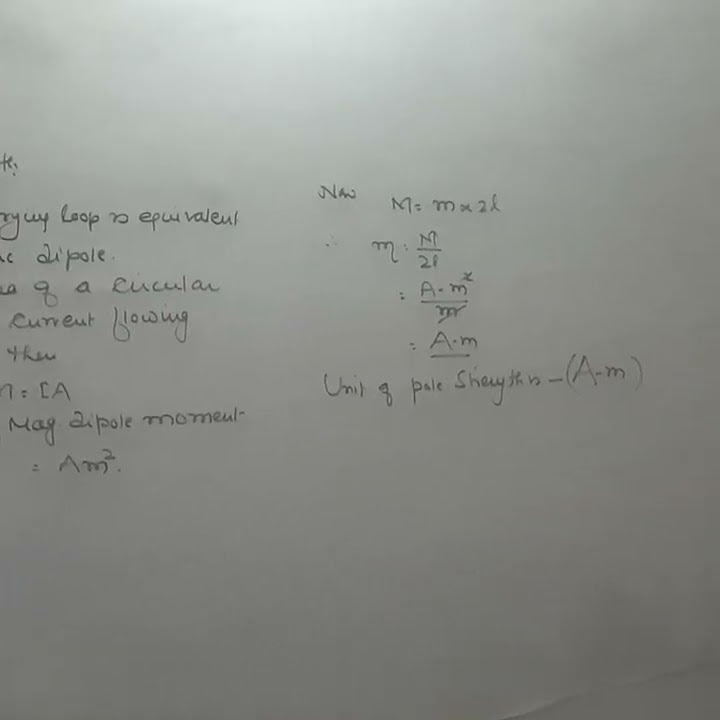 te:
rying loop is equivalent
ic dipole.
ea of a circular
current flowing
then
M = IA
Mag dipole moment
= Am².
Now M = m × 2l
∴ m = M/2l
= A-m²/m
= A-m
Unit of pole strength is - (A-m)